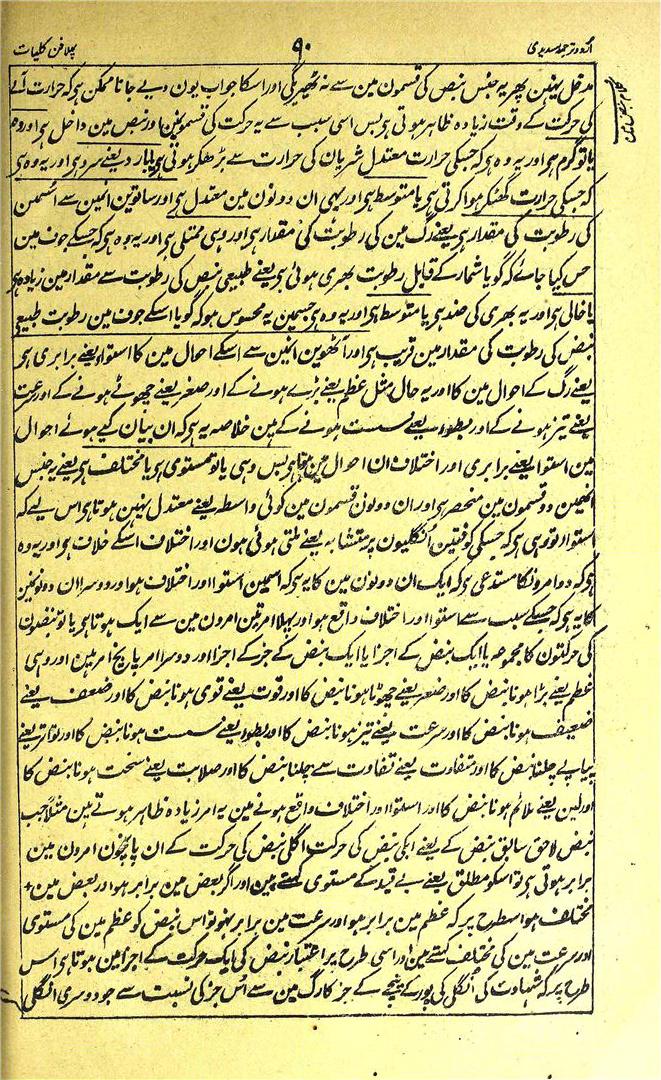 اردو ترجمہ سدیدی
۹۰
پہلا فن کلیات
مدخل نہین پھر یہ جنس نبض کی قسمون مین سے نہ ٹھیریگی اور اسکا جواب یون دیے جانا ممکن ہی کہ حرارت آلے
کی حرکت کے وقت زیادہ ظاہر ہوتی ہی بس اسی سبب سے یہ حرکت کی قسمونمین اور نبض مین داخل ہی اور وہ
یا تو گرم ہی اور یہ وہ ہی کہ جسکی حرارت معتدل شریان کی حرارت سے بڑھکر ہوتی ہی یا بارد یعنے سرد ہی اور یہ وہ ہی
کہ جسکی حرارت گھٹکر ہوا کرتی ہی یا متوسط ہی اور یہی ان دونون مین معتدل ہی اور ساتوین انمین سے اُسمین
کی رطوبت کی مقدار ہی یعنے رگ مین کی رطوبت کی مقدار ہی اور وہی ممتلی ہی اور یہ وہ ہی کہ جسکے جوف مین
حس کیا جائے کہ گویا شمار کے قابل رطوبت بھری ہوئی ہی یعنے طبیعی نبض کی رطوبت سے مقدار مین زیادہ ہی
یا خالی ہی اور یہ بھری کی ضد ہی یا متوسط ہی اور یہ وہ ہی جسمین یہ محسوس ہو کہ گویا اسکے جوف مین رطوبت طبیعی
نبض کی رطوبت کی مقدار مین قریب ہی اور آٹھوین انمین سے اسکے احوال مین کا استوا یعنے برابری ہی
یعنے رگ کے احوال مین کا اور یہ حال مثل عظم یعنے بڑے ہونے کے اور صغر یعنے چھوٹے ہونے کے اور سرعت
یعنے تیز ہونے کے اور بطوء یعنے سست ہونے کے ہین خلاصہ یہ ہی کہ ان بیان کیے ہوئے احوال
مین استوا یعنے برابری اور اختلاف ان احوال مین ہوتا ہی بس وہی یا تو مستوی ہی یا مختلف ہی یعنے یہ جنس
انھین دو قسمون مین منحصر ہی اور ان دونون قسمون مین کوئی واسطہ یعنے معتدل نہین ہوتا ہی اس لیے کہ
استوا تو وہی ہی کہ جسکی کوفتین انگلیون پر متشابہ یعنے ملتی ہوئی ہون اور اختلاف اسکے خلاف ہی اور یہ وہ
ہی کہ دو امرونکا مستدعی ہی کہ ایک ان دونون مین کا یہ ہی کہ اسمین استوا اور اختلاف ہو اور دوسرا ان دونونین
کا یہ ہی کہ جسکے سبب سے استوا اور اختلاف واقع ہو اور پہلا امر تین امرون مین سے ایک ہوتا ہی یا تو نبضون
کی حرکتون کا مجموعہ یا ایک نبض کے اجزا یا ایک نبض کے جز کے اجزا اور دوسرا امر پانچ امر ہین اور وہی
عظم یعنے بڑا ہونا نبض کا اور صغر یعنے چھوٹا ہونا نبض کا اور قوت یعنے قوی ہونا نبض کا اور ضعف یعنے
ضعیف ہونا نبض کا اور سرعت یعنے تیز ہونا نبض کا اور بطوء یعنے سست ہونا نبض کا اور تواتر یعنے
پیاپے چلنا نبض کا اور تفاوت یعنے تفاوت سے چلنا نبض کا اور صلابت یعنے سخت ہونا نبض کا
اور لین یعنے ملائم ہونا نبض کا اور استوا اور اختلاف واقع ہونے مین یہ امر زیادہ ظاہر ہوتے ہین مثلاً جب
نبض لاحق سابق نبض کے یعنے ابکی نبض کی حرکت اگلی نبض کی حرکت کے ان پانچون امرون مین
برابر ہوتی ہی تو اسکو مطلق یعنے بے قید کے مستوی کہتے ہین اور اگر بعض مین برابر ہو اور بعض مین
مختلف ہو اسطرح پر کہ عظم مین برابر ہو اور سرعت مین برابر نہو تو اس نبض کو عظم مین کی مستوی
اور سرعت مین کی مختلف کہتے ہین اور اسی طرح پر اعتبار نبض کی ایک حرکت کے اجزا مین ہوتا ہی اس
طرح پر کہ شہادت کی اُنگلی کی پور کے نیچے کے جز کا رگ مین سے اُس جز کی نسبت سے جو دوسری انگلی